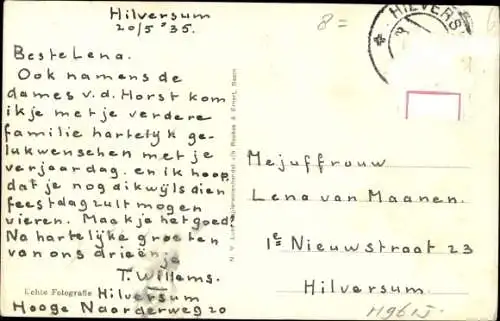 Hilversum
20/5 '35.
Beste Lena.
Ook namens de
dames v.d. Horst kom
ik je met je verdere
familie hartelyk ge-
lukwenschen met je
verjaardag. en ik hoop
dat je nog dikwyls dien
feestdag zult mogen
vieren. Maak je het goed?
Na hartelyke groeten
van ons drieën je
T. Willems.
Echte Fotografie
Hilversum
Hooge Naarderweg 20
8=
HILVERS
Mejuffrouw
Lena van Maanen.
1e Nieuwstraat 23
Hilversum.